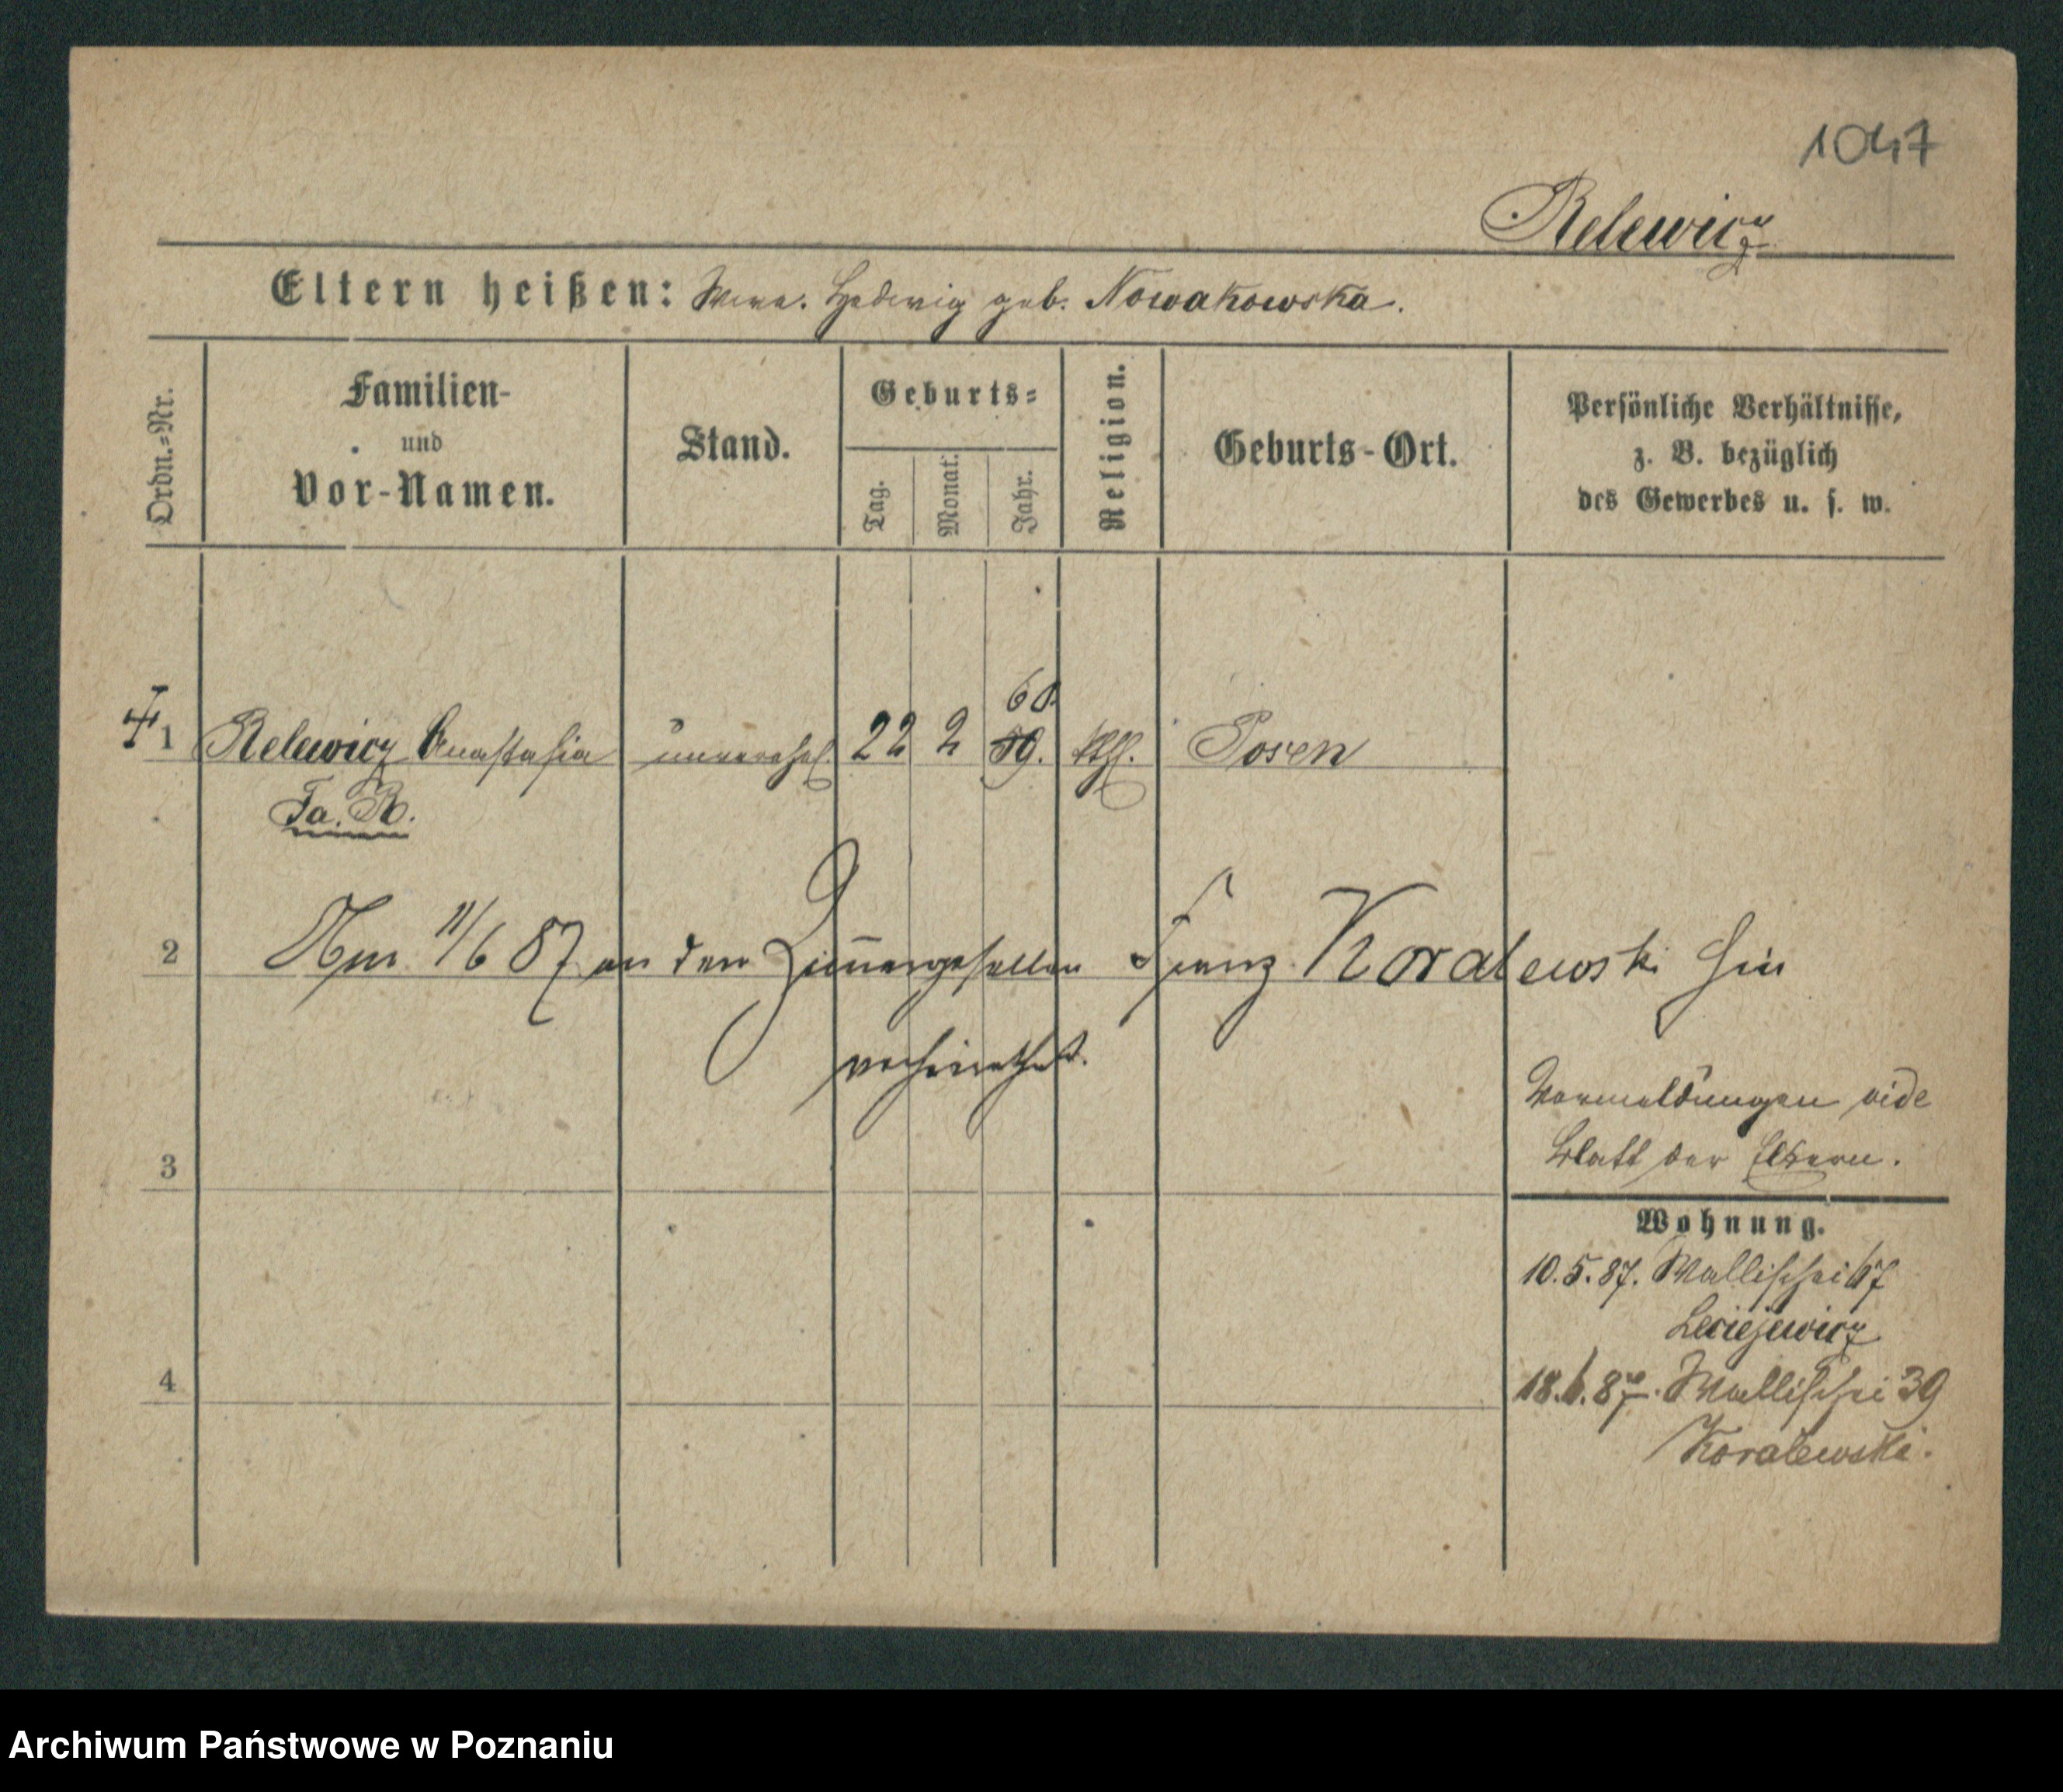 1047
Relewicz
Eltern heißen: Wwe. Hedwig geb. Nowakowska.
Ordn.=Nr.
Familien-
und
Vor-Namen.
Stand.
Geburts=
Tag.
Monat.
Jahr.
Religion.
Geburts-Ort.
Persönliche Verhältnisse,
z. B. bezüglich
des Gewerbes u. s. w.
60.
1 Relewicz Anastasia unverehel. 22 2 59. kthl. Posen
Fa. R.
2 Am 11/6 87 an den Zimmergesellen Franz Koralewski hier
verheirathet.
Vormeldungen vide
3 Blatt der Eltern.
Wohnung.
10.5.87. Wallischei 67
Leciejewicz
4 18.6.87. Wallischei 39
Koralewski.
Archiwum Państwowe w Poznaniu